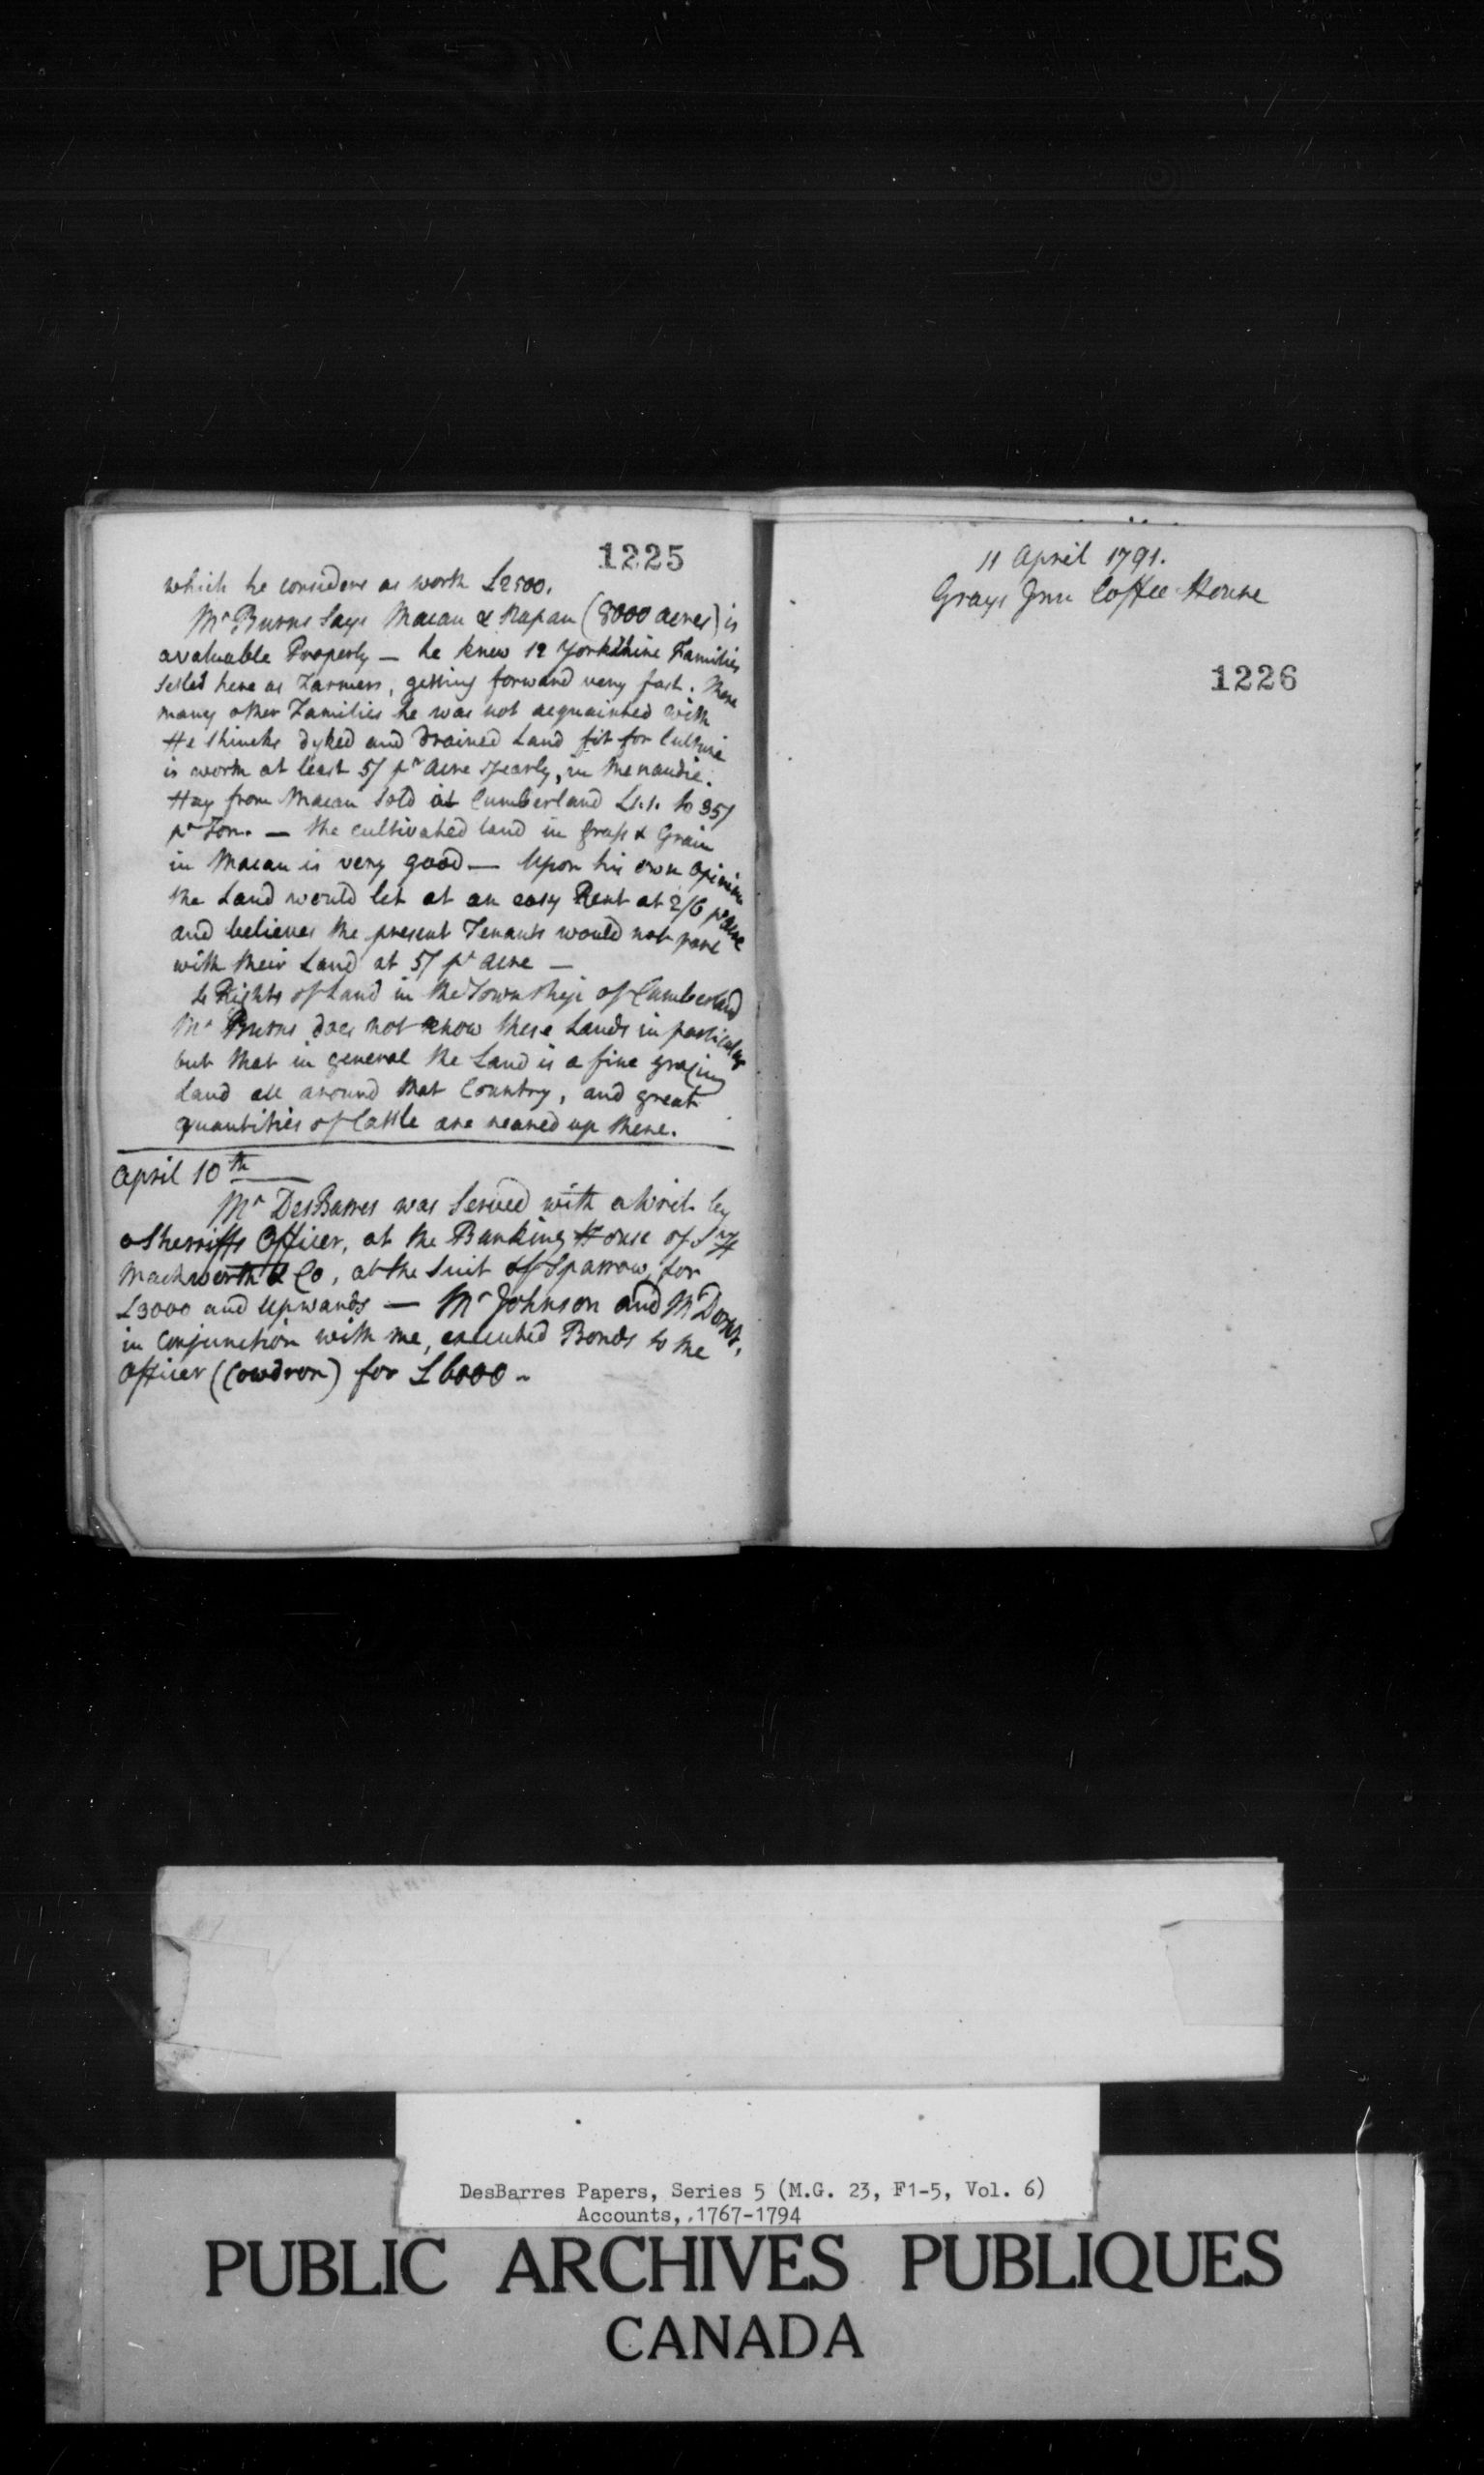 1225
which he considers as worth £2500.
Mr Burns Says Macan & Napan (8000 acres) is
a valuable Property — he knew 12 Yorkshire Families
settled here as Farmers, getting forward very fast. There
many other Families he was not acquainted with
He thinks dyked and drained Land fit for Culture
is worth at least 5/ pr Acre yearly, in Menaudie.
Hay from Macan sold at Cumberland £1.1. to 35/
pr Ton. — the cultivated land in Grass & Grain
in Macan is very good — Upon his own Opinion
the Land would let at an easy Rent at 2/6 pr Acre
and believes the present Tenants would not
with their Land at 5/ pr Acre —
4 Rights of Land in the Township of Cumberland
Mr Burns does not know these Lands in particular
but that in general the Land is a fine grazing
Land all around that Country, and great
quantities of Cattle are reared up there.
April 10th
Mr DesBarres was Served with a Writ by
a Sherriffs Officer, at the Banking House of Sr H
Mackworth & Co, at the Suit of Sparrow, for
£3000 and Upwards — Mr Johnson and Mr
in Conjunction with me, executed Bonds to the
Officer (Cowdron) for £6000 -
11 April 1791.
Grays Inn Coffee House
1226
DesBarres Papers, Series 5 (M.G. 23, F1-5, Vol. 6)
Accounts, 1767-1794
PUBLIC ARCHIVES PUBLIQUES
CANADA